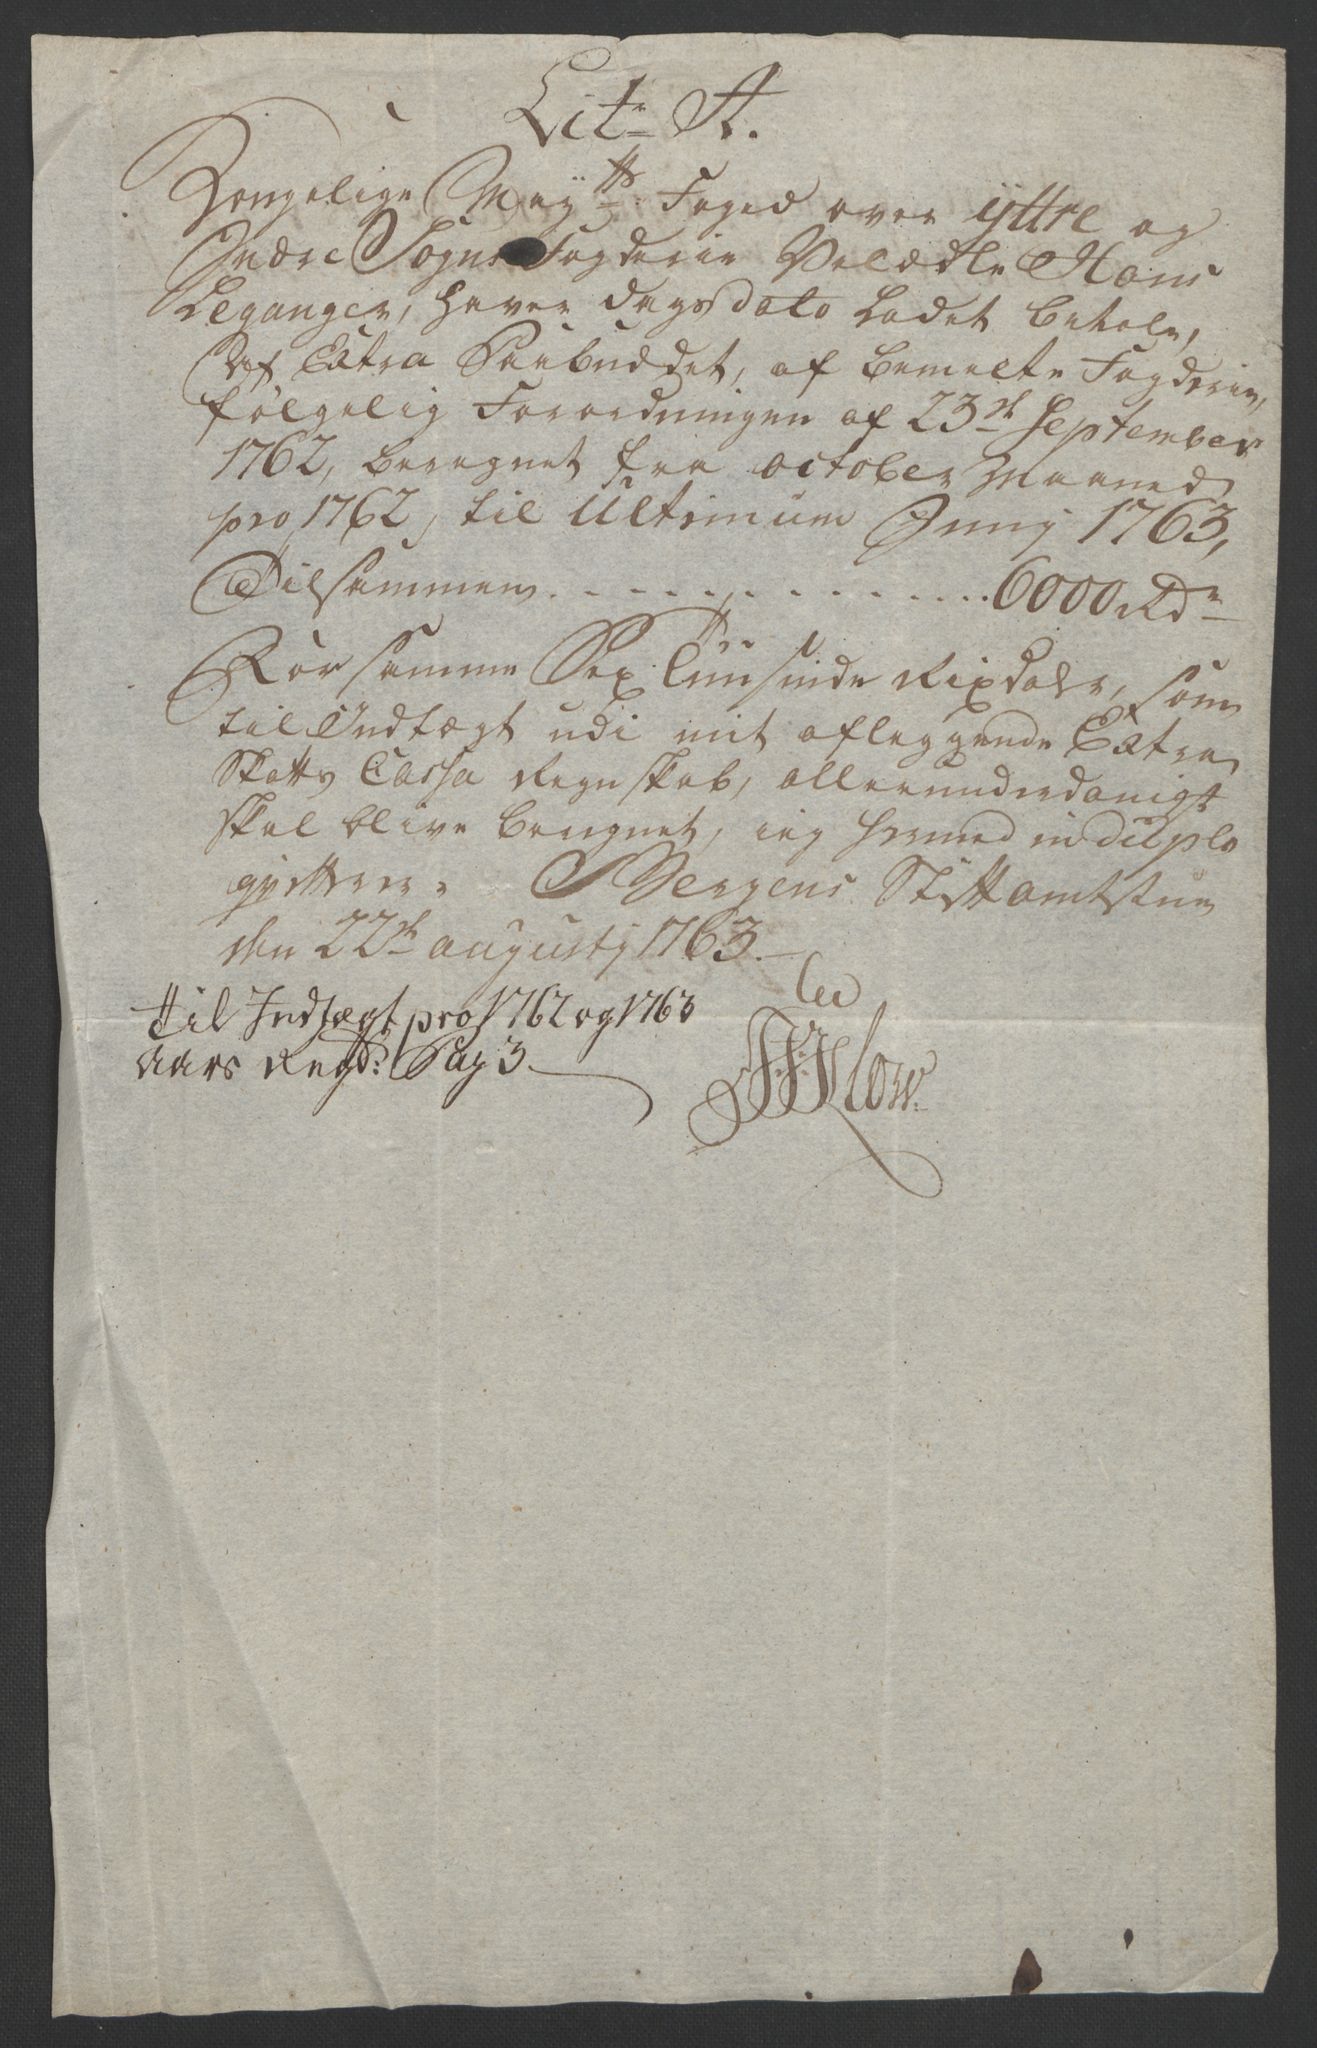 Litr A.
Kongelige Mayts Foged over ÿttre og
Indre Sogns Fogderie Velædle Hans
Leganger, haver dags dato Ladet betale,
Af Extra Paabuddet, af bemelte Fogderie,
følgelig Forordningen af 23de September
1762, beregnet fra october Maaned
pro 1762, til Ultimum Junij 1763,
Tilsammen . . . . . . . . . . . . 6000 Rdr
For samme Sex Tusinde Rixdaler, som
til Indtægt udi mit aflæggende Extra
Skatts Cassa Regnskab, allerunderdanigst
skal blive beregnet, ieg hermed in duplo
qvitterer. Bergens Stiftamtstue
den 22de augusty 1763.
Til Indtægt pro 1762 og 1763
Aars Regnsk: Pag 3